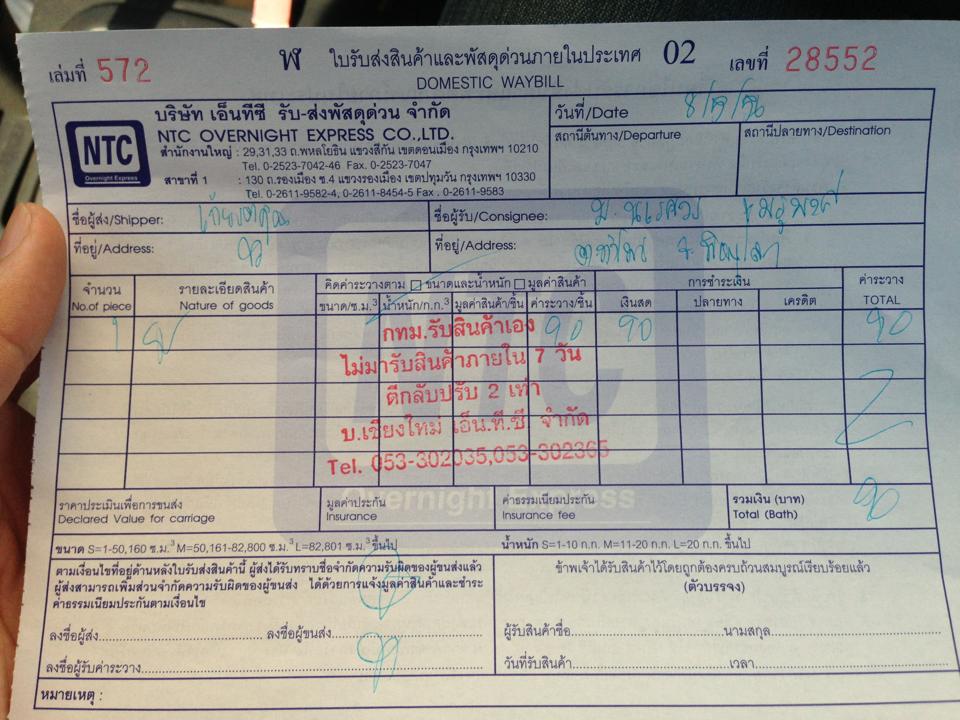 เล่มที่ 572 ฬ ใบรับส่งสินค้าและพัสดุด่วนภายในประเทศ 02 เลขที่ 28552
DOMESTIC WAYBILL
NTC
Overnight Express
บริษัท เอ็นทีซี รับ-ส่งพัสดุด่วน จำกัด
NTC OVERNIGHT EXPRESS CO.,LTD.
สำนักงานใหญ่ : 29,31,33 ถ.พหลโยธิน แขวงสีกัน เขตดอนเมือง กรุงเทพฯ 10210
Tel. 0-2523-7042-46 Fax. 0-2523-7047
สาขาที่ 1 : 130 ถ.รองเมือง ซ.4 แขวงรองเมือง เขตปทุมวัน กรุงเทพฯ 10330
Tel. 0-2611-9582-4, 0-2611-8454-5 Fax . 0-2611-9583
วันที่/Date
สถานีต้นทาง/Departure สถานีปลายทาง/Destination
ชื่อผู้ส่ง/Shipper: ชื่อผู้รับ/Consignee: ม.นเรศวร
ที่อยู่/Address: ที่อยู่/Address:
จำนวน รายละเอียดสินค้า คิดค่าระวางตาม ขนาดและน้ำหนัก มูลค่าสินค้า การชำระเงิน ค่าระวาง
No.of piece Nature of goods ขนาด/ซ.ม.³ น้ำหนัก/ก.ก.³ มูลค่าสินค้า/ชิ้น ค่าระวาง/ชิ้น เงินสด ปลายทาง เครดิต TOTAL
1 90 90 90
กทม.รับสินค้าเอง
ไม่มารับสินค้าภายใน 7 วัน
ตีกลับปรับ 2 เท่า
บ.เชียงใหม่ เอ็น.ที.ซี. จำกัด
Tel. 053-302035,053-302365
Overnight Express
ราคาประเมินเพื่อการขนส่ง มูลค่าประกัน ค่าธรรมเนียมประกัน รวมเงิน (บาท) 90
Declared Value for carriage Insurance Insurance fee Total (Bath)
ขนาด S=1-50,160 ซ.ม.³ M=50,161-82,800 ซ.ม.³ L=82,801 ซ.ม.³ ขึ้นไป น้ำหนัก S=1-10 ก.ก. M=11-20 ก.ก. L=20 ก.ก. ขึ้นไป
ตามเงื่อนไขที่อยู่ด้านหลังใบรับส่งสินค้านี้ ผู้ส่งได้รับทราบข้อจำกัดความรับผิดของผู้ขนส่งแล้ว
ผู้ส่งสามารถเพิ่มส่วนจำกัดความรับผิดของผู้ขนส่ง ได้ด้วยการแจ้งมูลค่าสินค้าและชำระ
ค่าธรรมเนียมประกันตามเงื่อนไข
ข้าพเจ้าได้รับสินค้าไว้โดยถูกต้องครบถ้วนสมบูรณ์เรียบร้อยแล้ว
(ตัวบรรจง)
ลงชื่อผู้ส่ง ลงชื่อผู้ขนส่ง
ลงชื่อผู้รับค่าระวาง
ผู้รับสินค้าชื่อ นามสกุล
วันที่รับสินค้า เวลา
หมายเหตุ :